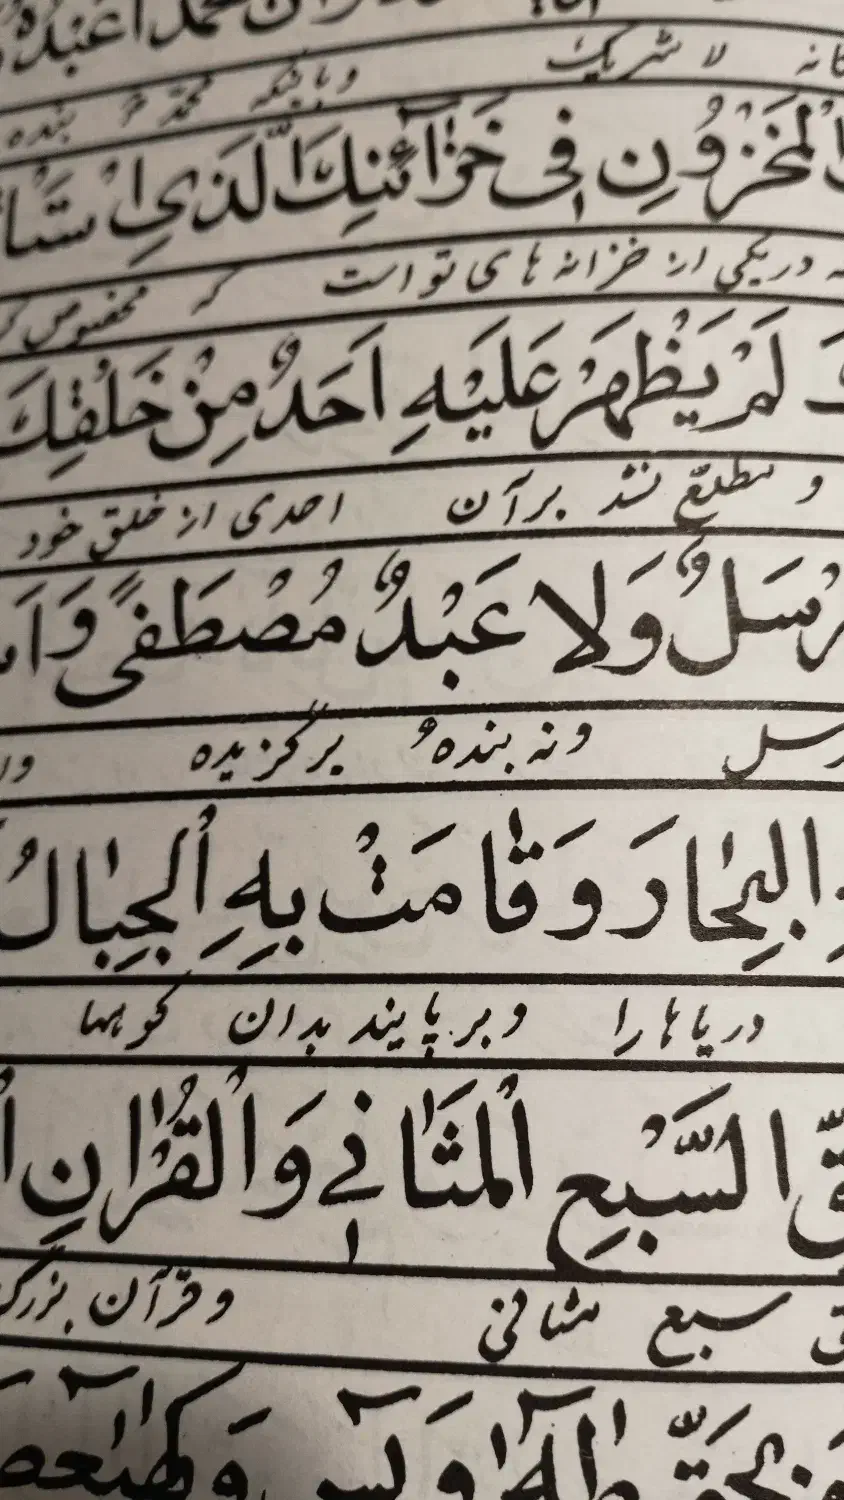 محمدا عبده
لا شریک وباینکه محمد بنده
المَخْزُونِ فی خَزآئِنِكَ الَّذِی
دریکی از خزانه های تو است که مخصوص
لَمْ یَظْهَرْ عَلَیْهِ اَحَدٌ مِنْ خَلْقِكَ
و مطلع نشد برآن احدی از خلق خود
وَلا عَبْدٌ مُصْطَفیً وَ
ونه بندهٔ برگزیده
البِحٰارَ وَ قٰامَتْ بِهِ الْجِبٰالُ
دریاها را وبر پایند بدان کوهها
السَّبْعِ الْمَثٰانی وَالْقُرْانِ
سبع مثانی وقرآن
طٰهٰ و یس وَ کهیعص